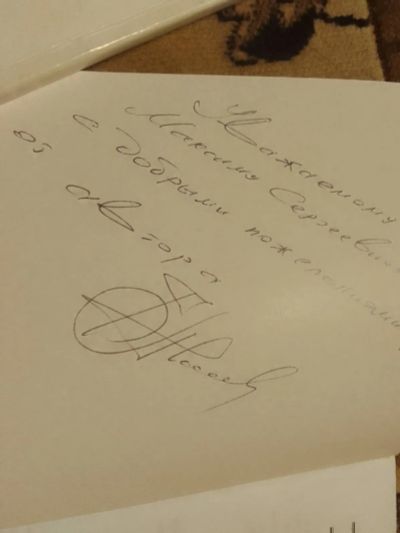 Уважаемому
Максиму Сергеевич
с добрыми пожеланиями
от автора